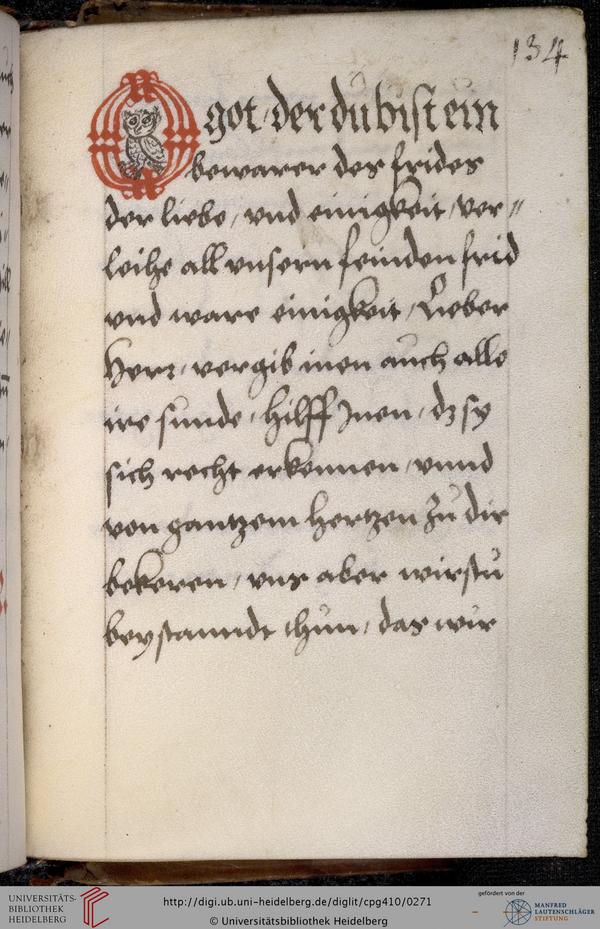 134
O got, der du bist ein
bewarer des frides
der liebe, vnd einigkeit, ver⸗
leihe all vnsern feinden frid
vnd ware einigkeit, Lieber
Herr, vergib inen auch alle
ire sunde, hilff Inen, dz sy
sich recht erkennen, vnnd
von gantzem hertzen zu dir
bekeren, vns aber wirstu
beystanndt thun, das wir
UNIVERSITÄTS-
BIBLIOTHEK
HEIDELBERG
http://digi.ub.uni-heidelberg.de/diglit/cpg410/0271
© Universitätsbibliothek Heidelberg
gefördert von der
MANFRED
LAUTENSCHLÄGER
STIFTUNG